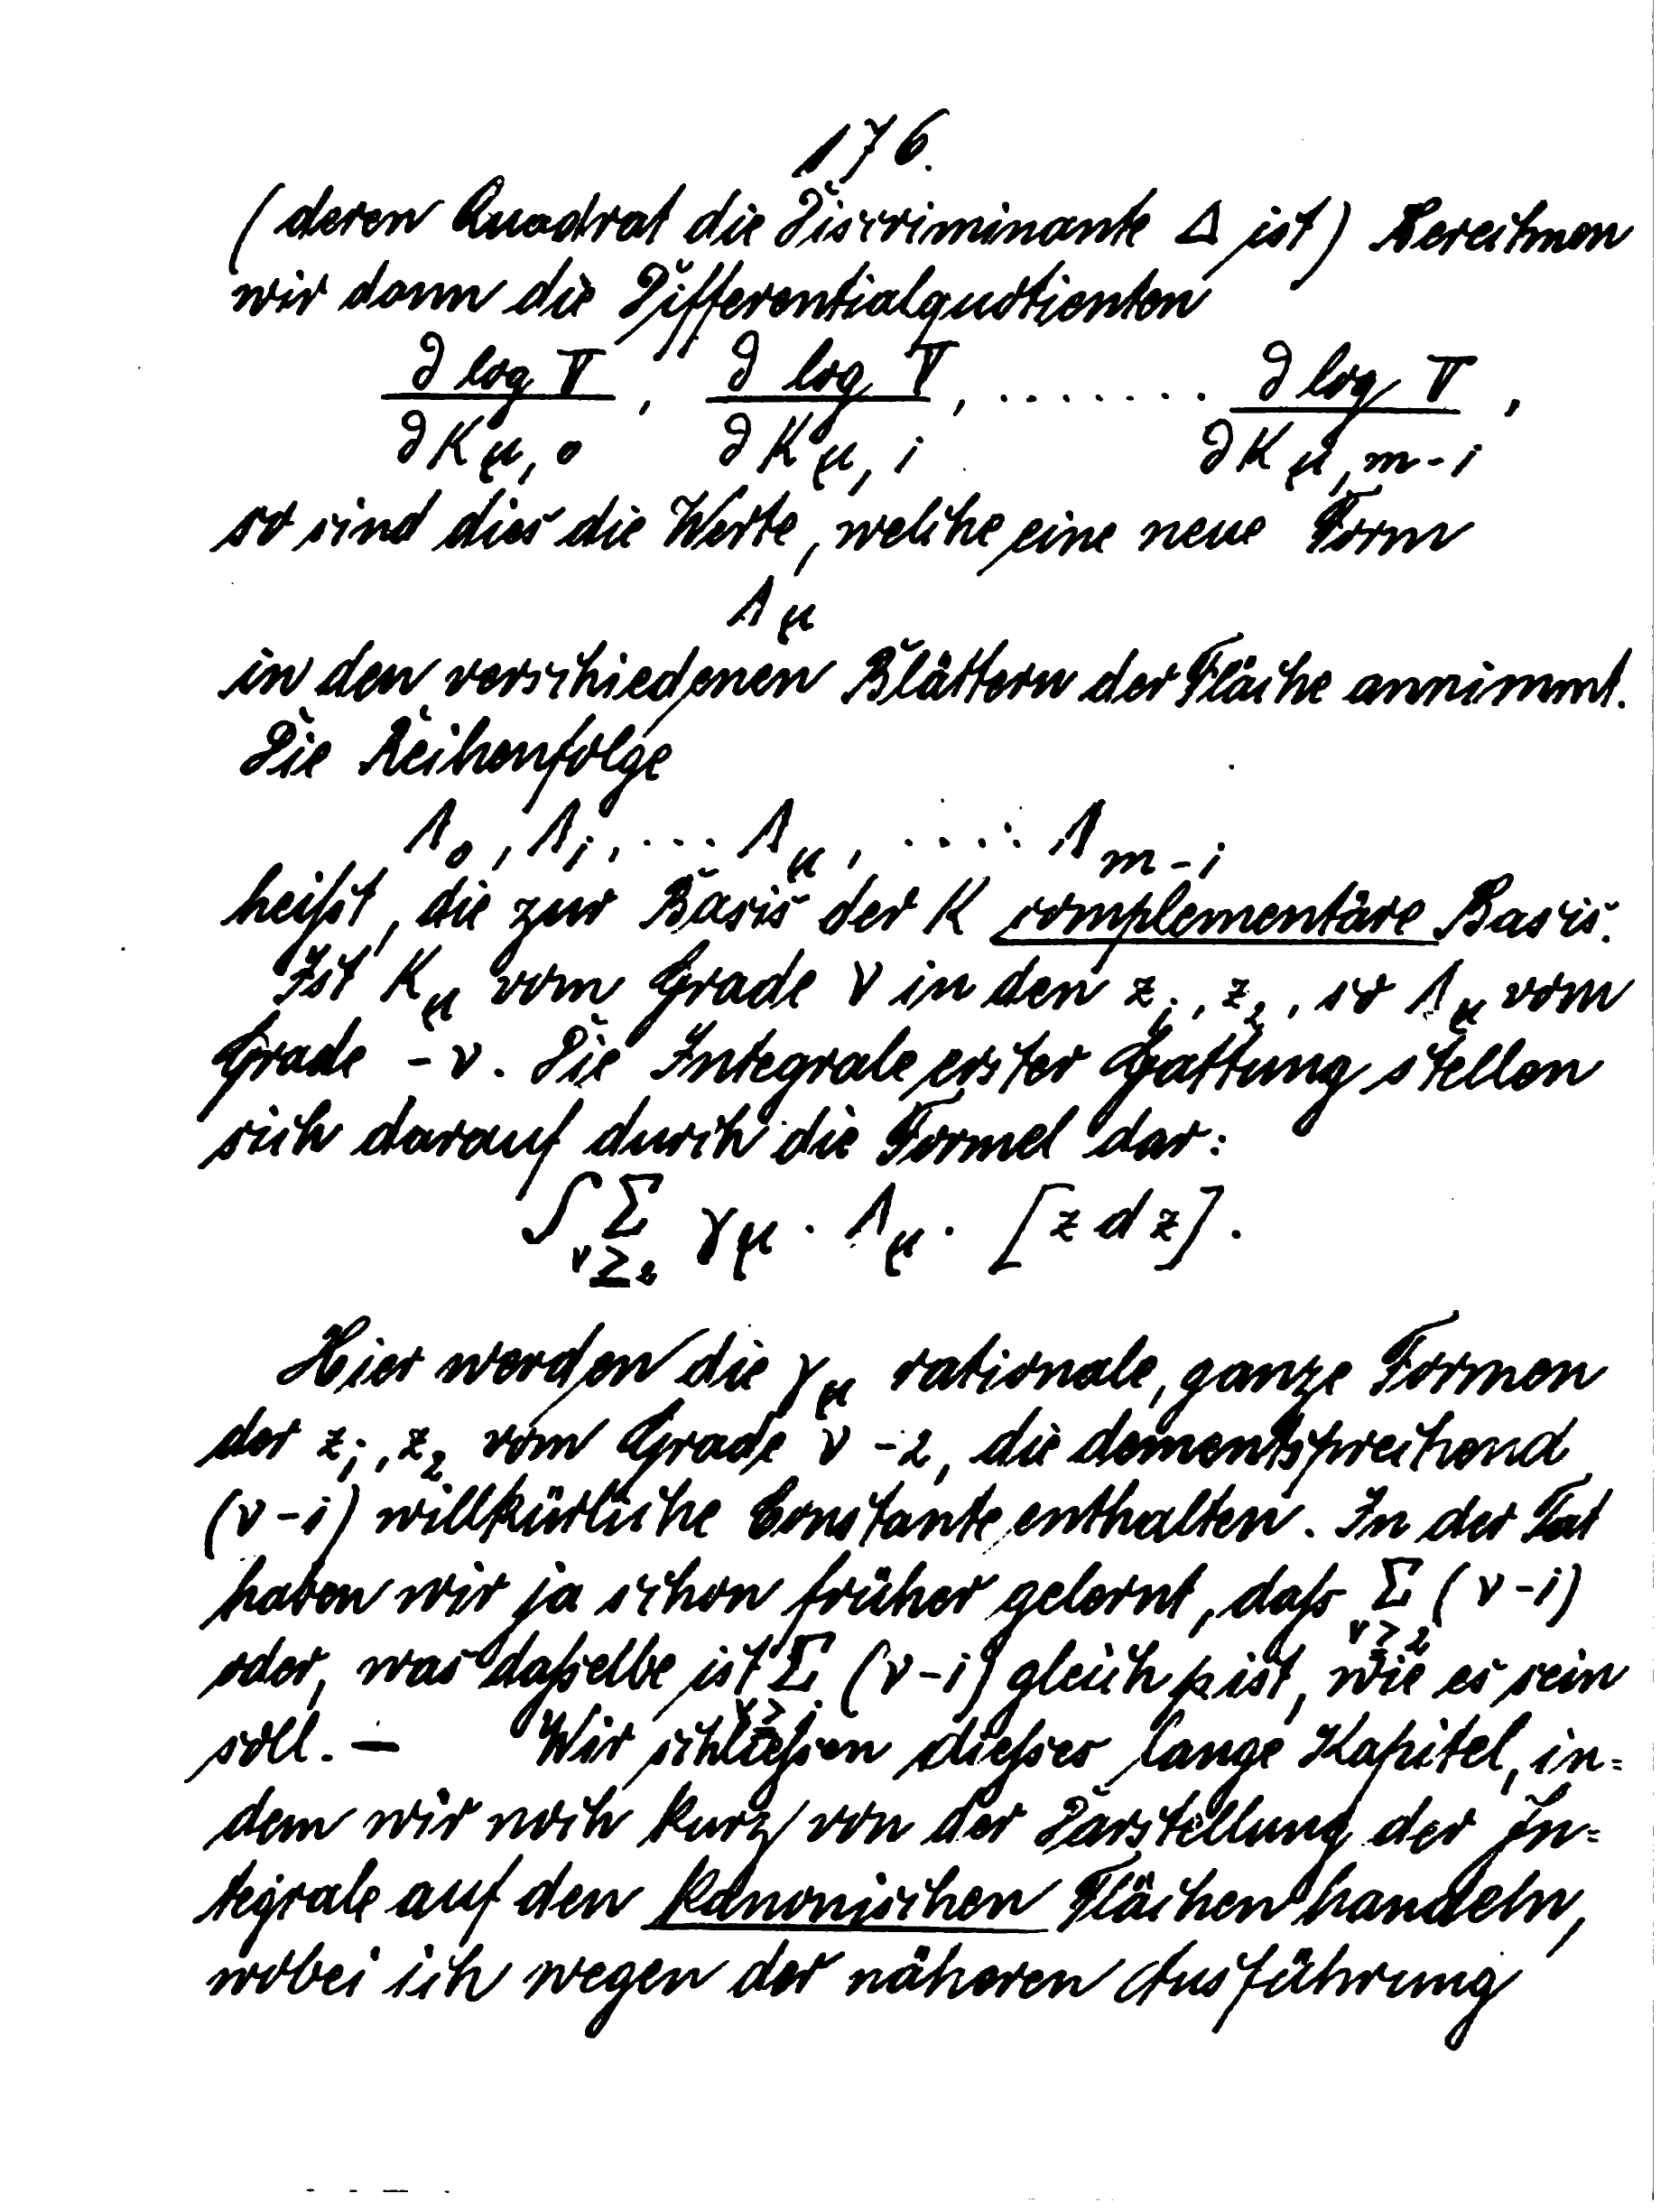 176.
(deren Quadrat die Discriminante Δ ist) Berechnen
wir dann die Differentialquotienten
∂ log ∇ / ∂K μ,0 , ∂ log ∇ / ∂K μ,1 , ....... ∂ log ∇ / ∂K μ,m-1 ,
so sind dies die Werte, welche eine neue Form
Λ μ
in den verschiedenen Blättern der Fläche annimmt.
Die Reihenfolge
Λ₀, Λ₁, ... Λ μ, ..... Λ m-1
heißt, die zur Basis der K complementäre Basis.
Ist K μ vom Grade ν in den z₁, z₂, so Λ μ vom
Grade -ν. Die Integrale erster Gattung stellen
sich darauf durch die Formel dar:
∫ Σ ν≧2 γ μ · Λ μ · [z dz].
Hier werden die γ μ rationale, ganze Formen
der z₁, z₂ vom Grade ν-2, die dementsprechend
(ν-1) willkürliche Constante enthalten. In der Tat
haben wir ja schon früher gelernt, daß Σ ν≧2 (ν-1)
oder, was daßelbe ist Σ ν≧1 (ν-1) gleich p ist, wie es sein
soll. — Wir schließen dießes lange Kapitel, in=
dem wir noch kurz von der Darstellung der In=
tegrale auf den kanonischen Flächen handeln,
wobei ich wegen der näheren Ausführung